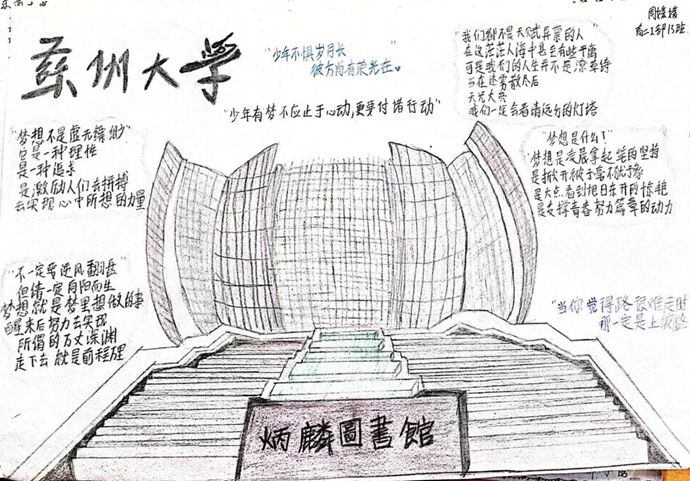 苏州大学
"少年不惧岁月长
彼方尚有荣光在。
"少年有梦不应止于心动,更要付诸行动"
"我们都不是天赋异禀的人
在这茫茫人海中甚至有些平庸
可是我们的人生并不是潦草诗
当在迷雾散尽后
天光大亮
我们一定会看清远方的灯塔
高二1部13班
"梦想不是虚无缥缈"
它是一种理性
是一种追求
是激励人们去拼搏
去实现心中所想的力量
"梦想是什么?"
"梦想是凌晨拿起笔的坚持
是掀开被子毫不犹豫
是大点看到旭日东升的惊艳
是支撑青春努力篇章的动力
"不一定要逆风翻盘
但请一定向阳而生
梦想就是梦里想做的事
醒来后努力去实现
所谓的万丈深渊
走下去就是前程理
"当你觉得路很难走时
那一定是上坡路
炳麟圖書館